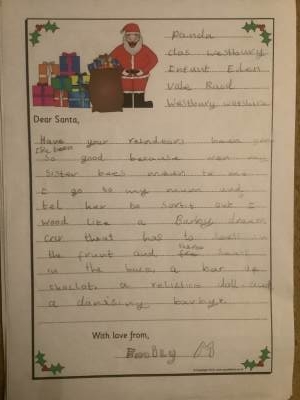 Panda
Clas Westbury
Infant Eden
Vale Raud
Westbury
Dear Santa,
Have your reindeers been
I've been
so good because wen my
sister bees to me
I go to my mum and
tel her to sort it out I
wood like a Barby dream
car theat has to in
the frunt and three
in the back, a bar of
choclot, a doll and
a dansing barbye.
With love from,